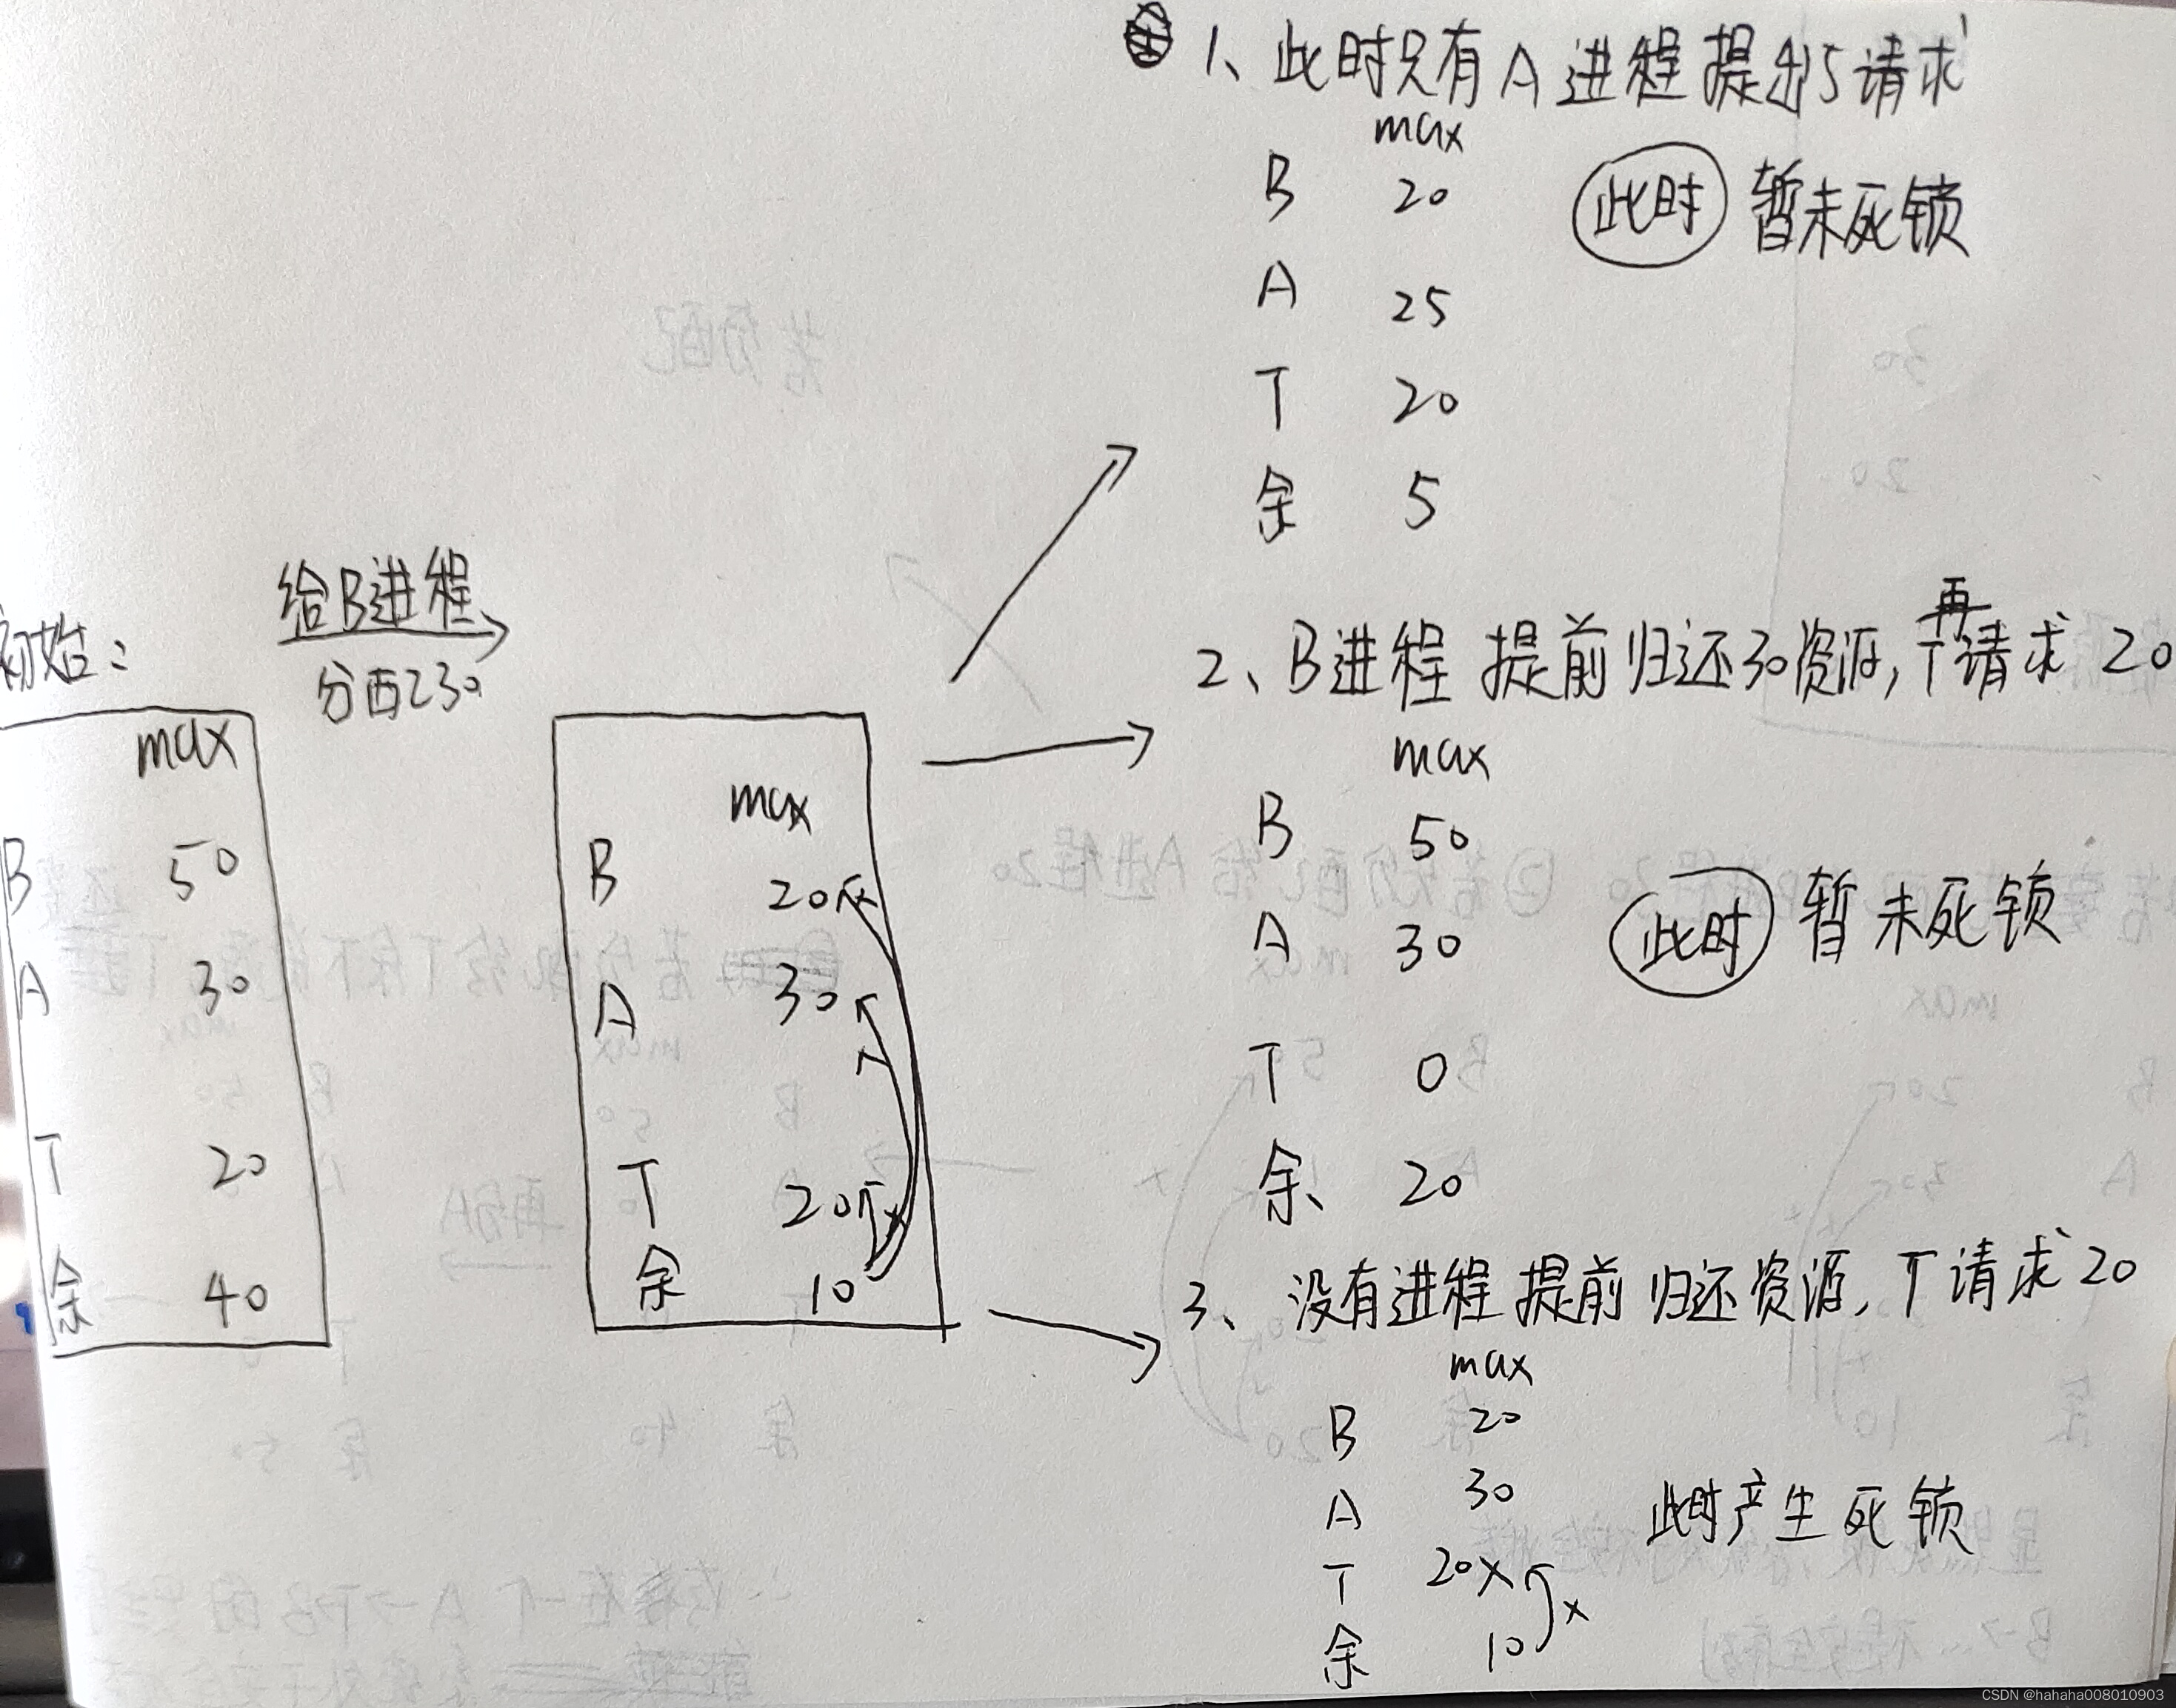 初始：
max
B 50
A 30
T 20
余 40
给B进程
分配30
max
B 20
A 30
T 20
余 10
1、此时只有A进程提出5请求
max
B 20
此时 暂未死锁
A 25
T 20
余 5
2、B进程提前归还30资源，再T请求20
max
B 50
A 30
此时 暂未死锁
T 0
余 20
3、没有进程提前归还资源，T请求20
max
B 20
A 30
此时产生死锁
T 20 x
x
余 10
CSDN @hahaha008010903